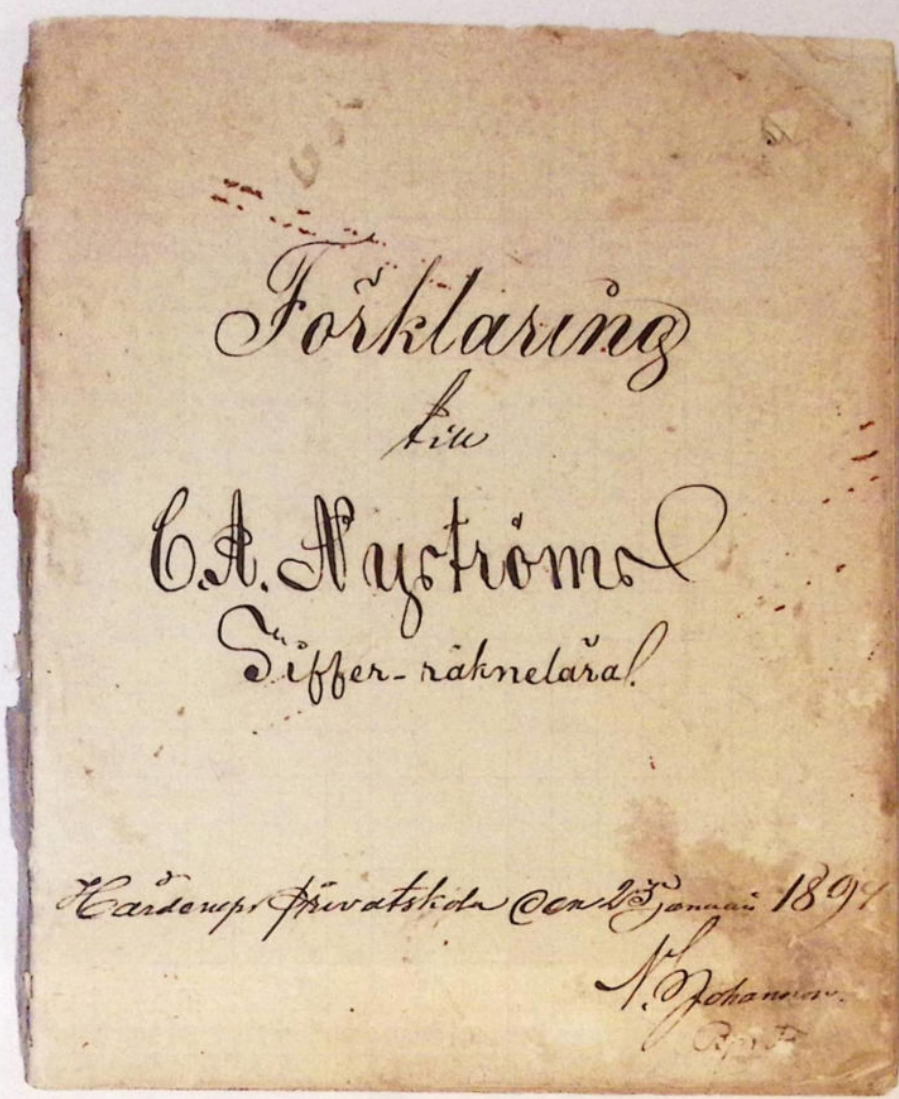 Förklaring
till
C.A. Nyströms
Siffer-räknelära.
Privatskola den 23 Januari
N. Johansson.